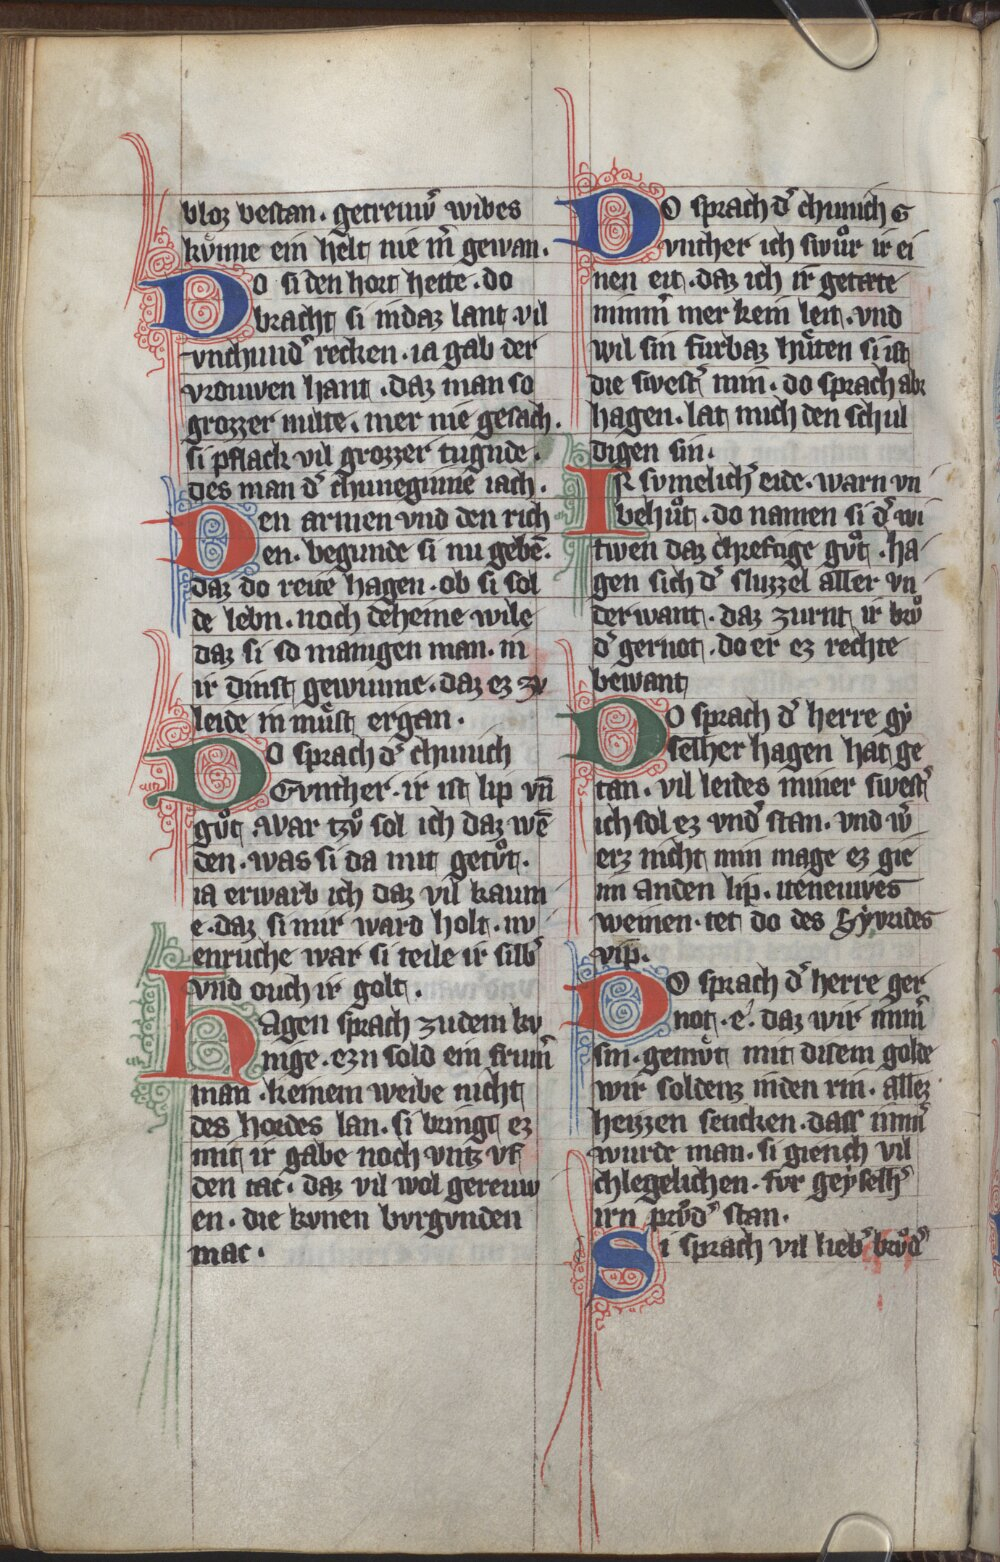 bloz bestan. getreuw͛ wibes
kůnne ein helt nie m̄ gewan.
Do si den hort hette. do
bracht si in daz lant vil
vnchund͛ recken. ia gab der
vrouwen hant. daz man so
grozzer milte. mer nie gesach.
si pflack vil grozzer tugnde.
des man d͛ chuneginne iach.
Den armen vnd den rich
en. begunde si nu gebē.
daz do reite hagen. ob si sol
de lebn. noch deheine wile
daz si so manigen man. in
ir dinst gewunne. daz ez zv
leide in můst ergan.
Do sprach d͛ chunich
Gvnther. ir ist lip vn̄
gůt. war tzů sol ich daz wē
den. was si da mit getůt.
ia erwarb ich daz vil kaum
e. daz si mir ward holt. nv
enruche war si teile ir silb͛
vnd ouch ir golt.
Hagen sprach zu dem kv
nige. ezn sold ein frum͛
man. keinem weibe nicht
des hordes lan. si bringt ez
mit ir gabe noch vntz vf
den tac. daz vil wol gereuw
en. die kvnen bvrgvnden
mac.
Do sprach d͛ chunich G
vnther ich swůr ir ei
nen eit. daz ich ir getete
nimm͛ mer kein leit. vnd
wil sin furbaz hůten si ist
die swest͛ min. do sprach ab͛
hagen. lat mich den schul
digen sin.
Ir svmelich͛ eide. warn vn
behůt. do namen si d͛ wi
twen daz chreftige gůt. ha
gen sich d͛ sluzzel aller vn
derwant. daz zurnt ir brů
d͛ gernot. do er ez rechte
bewant
Do sprach d͛ herre gy
selher hagen hat ge
tan. vil leides miner swest͛
ich sol ez vnd͛ stan. vnd w͛
erz nicht min mage ez gie
im an den lip. iteneuwes
weinen. tet do des Syvrides
vip.
Do sprach d͛ herre ger
not. e. daz wir imm͛
sin. gemůt mit disem golde
wir soldenz in den rin. allez
heizzen sencken. daz nim͛
wurde man. si giench vil
chlegelichen. fvr geyselh͛
irn průd͛ stan.
Si sprach vil lieb͛ brůd͛